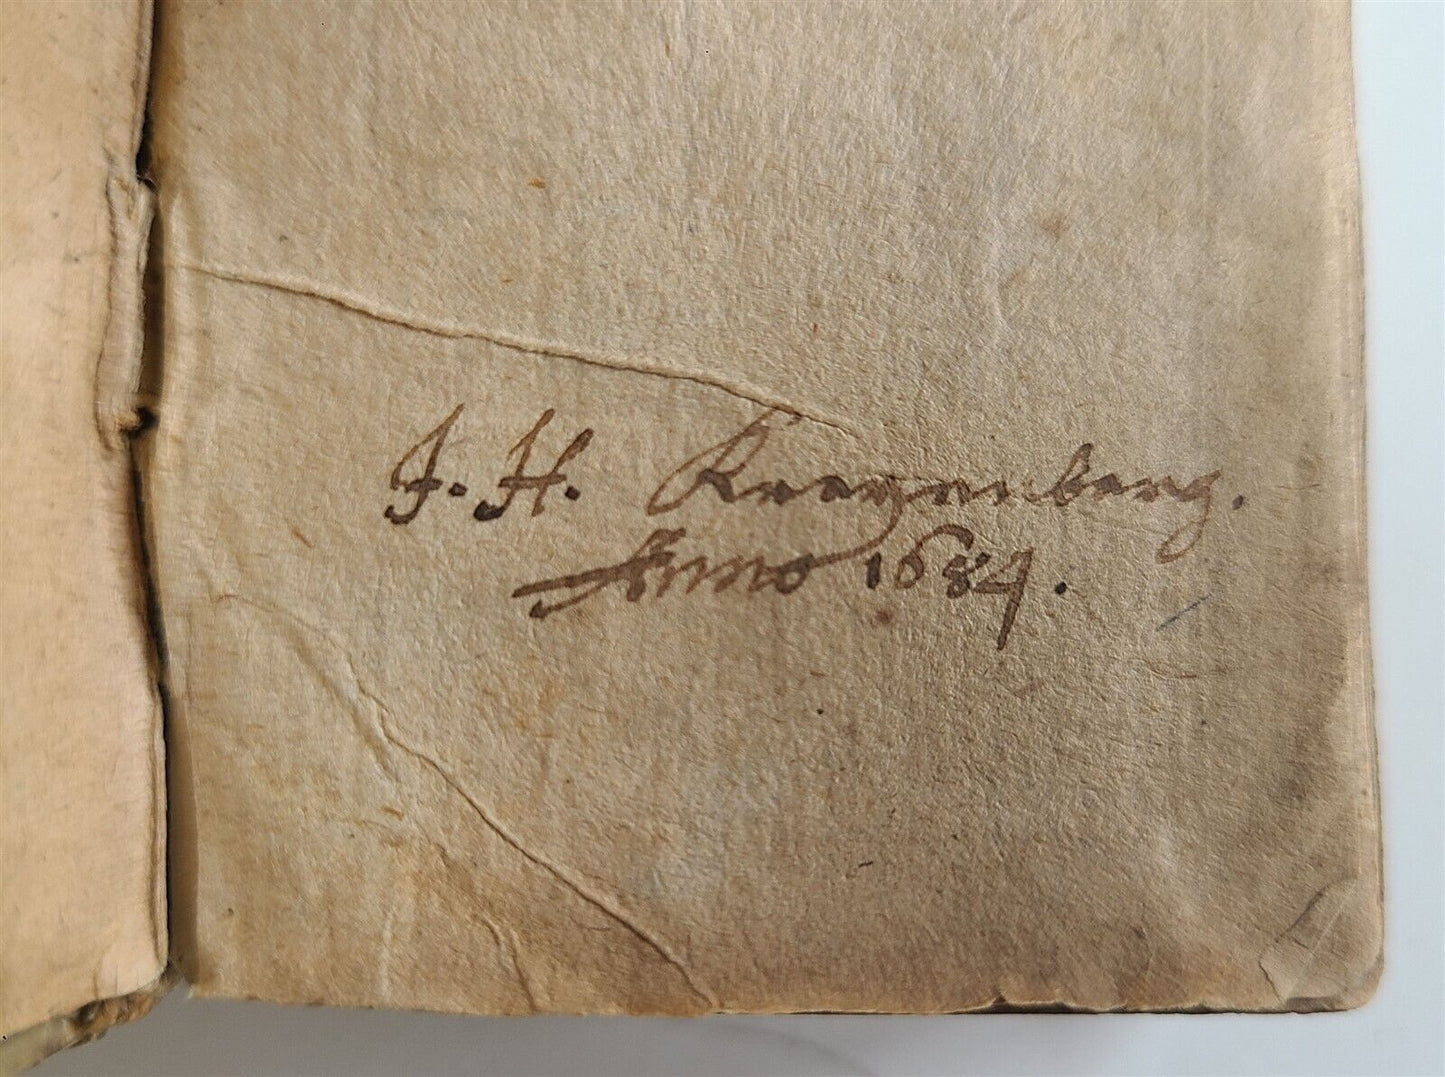 J. H. Kreyenberg.
Anno 1684.